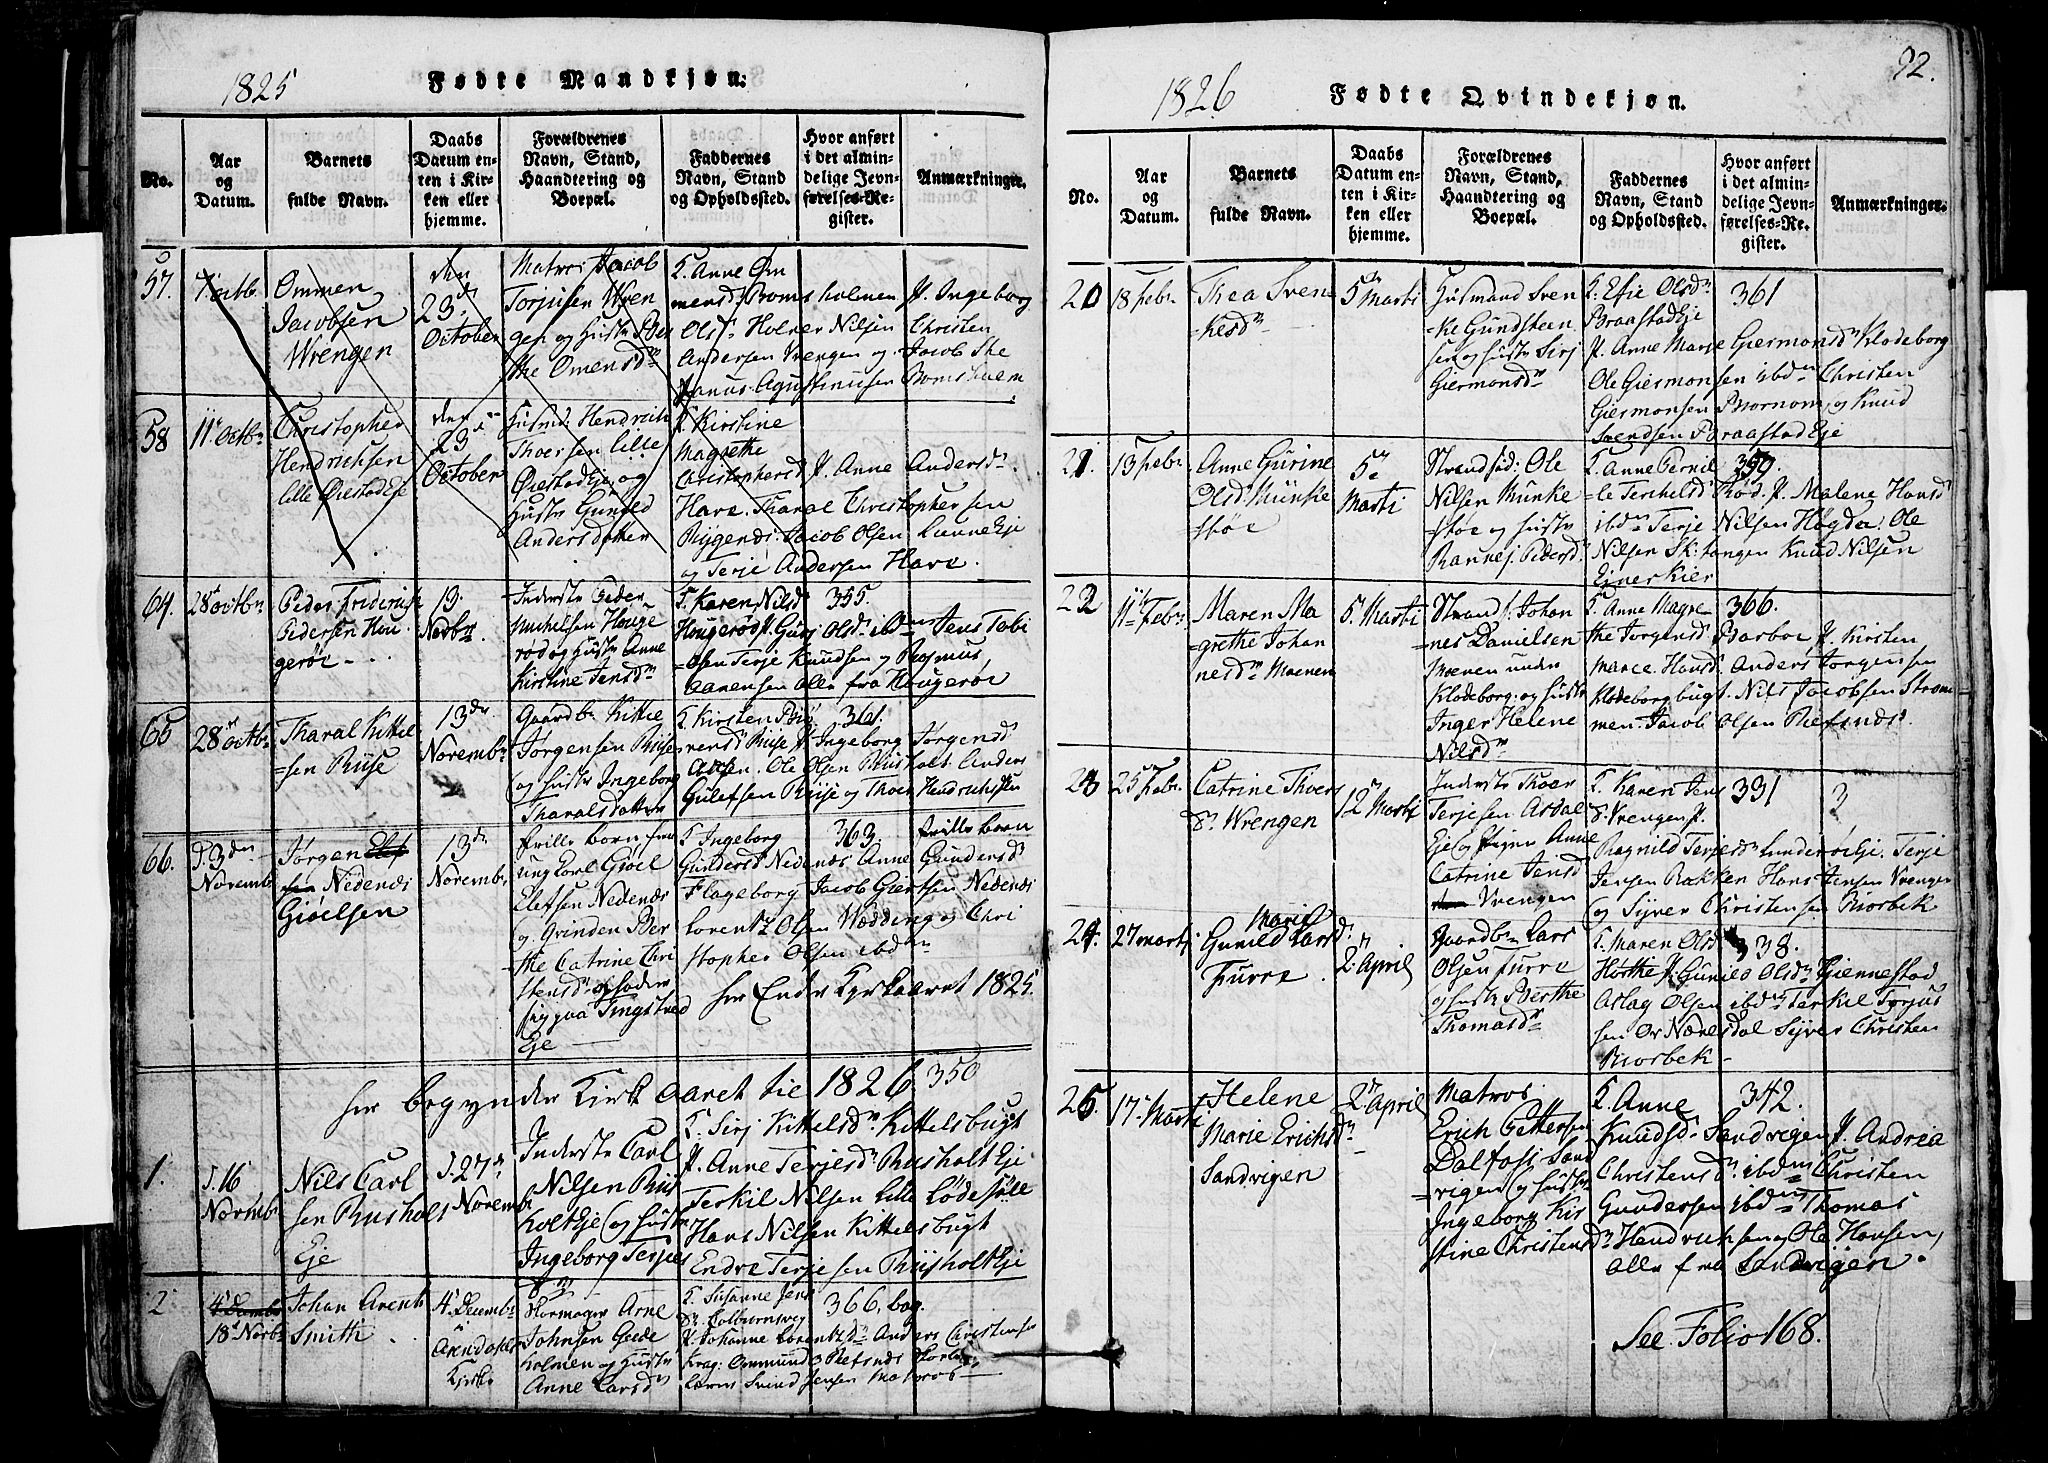 1825
Fødte Mandkjøn.
No.
Aar
og
Datum.
Barnets
fulde Navn.
Daabs
Datum en-
ten i Kir-
ken eller
hjemme.
Forældrenes
Navn, Stand,
Haandtering og
Boepæl.
Faddernes
Navn, Stand
og Opholdssted.
Hvor anført
i det almin-
delige Jevn-
førelses-Re-
gister.
Anmærkninger.
57.
octbr
Ommen
Jacobsen
Wrengen
den
23
October
Matros Jacob
Torjusen Wren
gen og Hustr Ber
the Omensdr
Anne Om
mensd Boms holmen J. Ingeborg
Olsd Holner Nilsen Christen
Andersen Vrengen og Jacob Ste
fanus Agustinusen Bomsholm
58
11 Octbr
Christopher
Hendrichsen
lille ØiestadEje
den
23
October
Husmd: Hendrich
Thorsen lille
ØiestadEje og
Hustr Gunild
Andersdatter
Kirstine
Magrethe
Christophersd J. Anne Andersdr
Have. Tharal Christophersen
Rÿggenes: Jacob Olsen LunneEje
og Terje Andersen Have.
64.
28 octbr
Peder Friderich
Pedersen Hou
gerøe
13
Novbr
Inderste Peder
Michelsen Houge
rød og Hustr Anne
Kirstine Jensdr
F. Karen Nilsd 355.
Hougerød J. Guri Olsdr ibdn Jens Tobi
-asen Terje Knudsen og Rasmus
Aanensen alle fra Hougerøe
65
28 octbr
Tharal Kittel
-sen Riise
13de
Novembr
Gaardbr Kittel
Jørgensen Riise
og Hustr Ingeborg
Tharalsdatter
K. Kirsten Biø 361.
rensd Riise J. Ingeborg Jørgensd
Ole Olsen Rusholt Anders
Gulefsen Riise og Thor Hendrichsen
66.
D. 3den
Novembr
Jørgen
Nedenes
Giøelsen
13de
Novembr
frille barn fra
ung Carl Giøel
Elefsen Nedenæs
og Qvinden Ber
the Catrine Chri
stensd
Tingstved
Eje
F. Ingeborg 363. frille barn
Gundersd Nedenæs Anne Gundersd
Flageborg Jacob Giertsen Nedenæs
Lorentz Olsen Wedding og Chri
stopher Olsen ibdn
her Ender Kyrkeaaret 1825.
her begynder Kirkeaaret til 1826. 350
1.
D. 16
Novmbr
Nils Carl
sen Rusholt
Eje
D. 27de
Novembr
Inderste Carl
Nilsen Riis
holtEje og Hustr
Ingeborg Terjes
dr
K. Siri Kittelsdr Kittelsbugt
J. Anne Terjesdr RusholtEje
Terkil Nilsen lille Lødesøle
Hans Nilsen Kittelsbugt
Endre Terjesen RiisholtEje
2
18 Novbr
Johan Arent
Smith
4 Decembr
i
Arendals
Kirke
Arne
Johnsen Gode
holmen og Hustr
Anne Larsdr
K. Susanne Jens 366. bag.
dr. Colbiørnsvig
J. Johanne Lorentzdr Anders Christensen
Krag: Ommund Refsnes
Svend Jensen Matros
92.
1826
Fødte Qvindekjøn.
No.
Aar
og
Datum.
Barnets
fulde Navn.
Daabs
Datum en-
ten i Kir-
ken eller
hjemme.
Forældrenes
Navn, Stand,
Haandtering og
Boepæl.
Faddernes
Navn, Stand
og Opholdssted.
Hvor anført
i det almin-
delige Jevn-
førelses-Re-
gister.
Anmærkninger.
20
18 febr
Thea Sven
-kesdr
5 Marti
Husmand Sven
-ke Gundsteen
sen og Hustr Siri
Giermonsdr
K: Efie Olsdr 361
BraastadEje
J. Anne Marie Giermonsd Klodeborg
Ole Giermonsen ibdn Christen
Giermonsen Bornom og Knud
Svendsen BraastadEje
21.
13 febr
Anne Gurine
Olsdr Munke
-støe
5
Marti
Strandsid: Ole
Nilsen Munke
-støe og Hustr
Rannej Pedersd
K. Anne Pernil 359.
-le Terchelsd Rød. J. Malene Hansd
ibdn Terje Nilsen Høgda: Ole
Nilsen Skitangen Knud Nilsen
EjnerKier
22
11 Febr
Maren Ma
grethe Johan
nesdr Moenen
5. Marti
Strands: Johan
-nes Danielsen
Moenen under
Klodeborg: og Hustr
Inger Helene
Nilsdr
K. Anne Magre 366.
the Jørgensd Barboe J. Kirsten
Marce. Hansd. Anders Jørgensen
Klodeborg bugt. Nils Jacobsen Strøm
men. Jacob Olsen Refsnæs.
23
25 Febr
Catrine Thors
dr. Wrengen
12 Marti
Inderste Thor
Terjesen Asdal
Eje og Anne
Catrine Jensd
Vrengen
K. Karen Jens 331
dr. Vrengen J.
Ragnild Terjesdr LunderødEje. Terje
Jensen Rækken Hans Jensen Vrengen
og Siver Christensen Biorbek
24.
27 Marti
Gunild Marie Larsdr
Furre
2. April
Gaardbr Lars
Olsen Furre
og Hustr Berthe
Thomasdr
K. Maren Olsd 338.
Hørthe J. Gunild Olsdr Giennestad
Aslag Olsen ibdn Terkil Torjus
sen Øv Næresdal Siver Christen
Biorbek
25.
17 Marti
Helene
Marie Erichsdr
Sandvigen
2 April
Matros
Erich Pettersen
Dalfos i Sand
-vigen og Hustr
Ingeborg Kir
stine Christensdr
K. Anne 342.
Knudsd Sandvigen J. Andrea
Christensdr ibdn Christen
Gundersen ibdn Thomas
Hendrichsen og Ole Hansen,
alle fra Sandvigen.
See Folio 168.